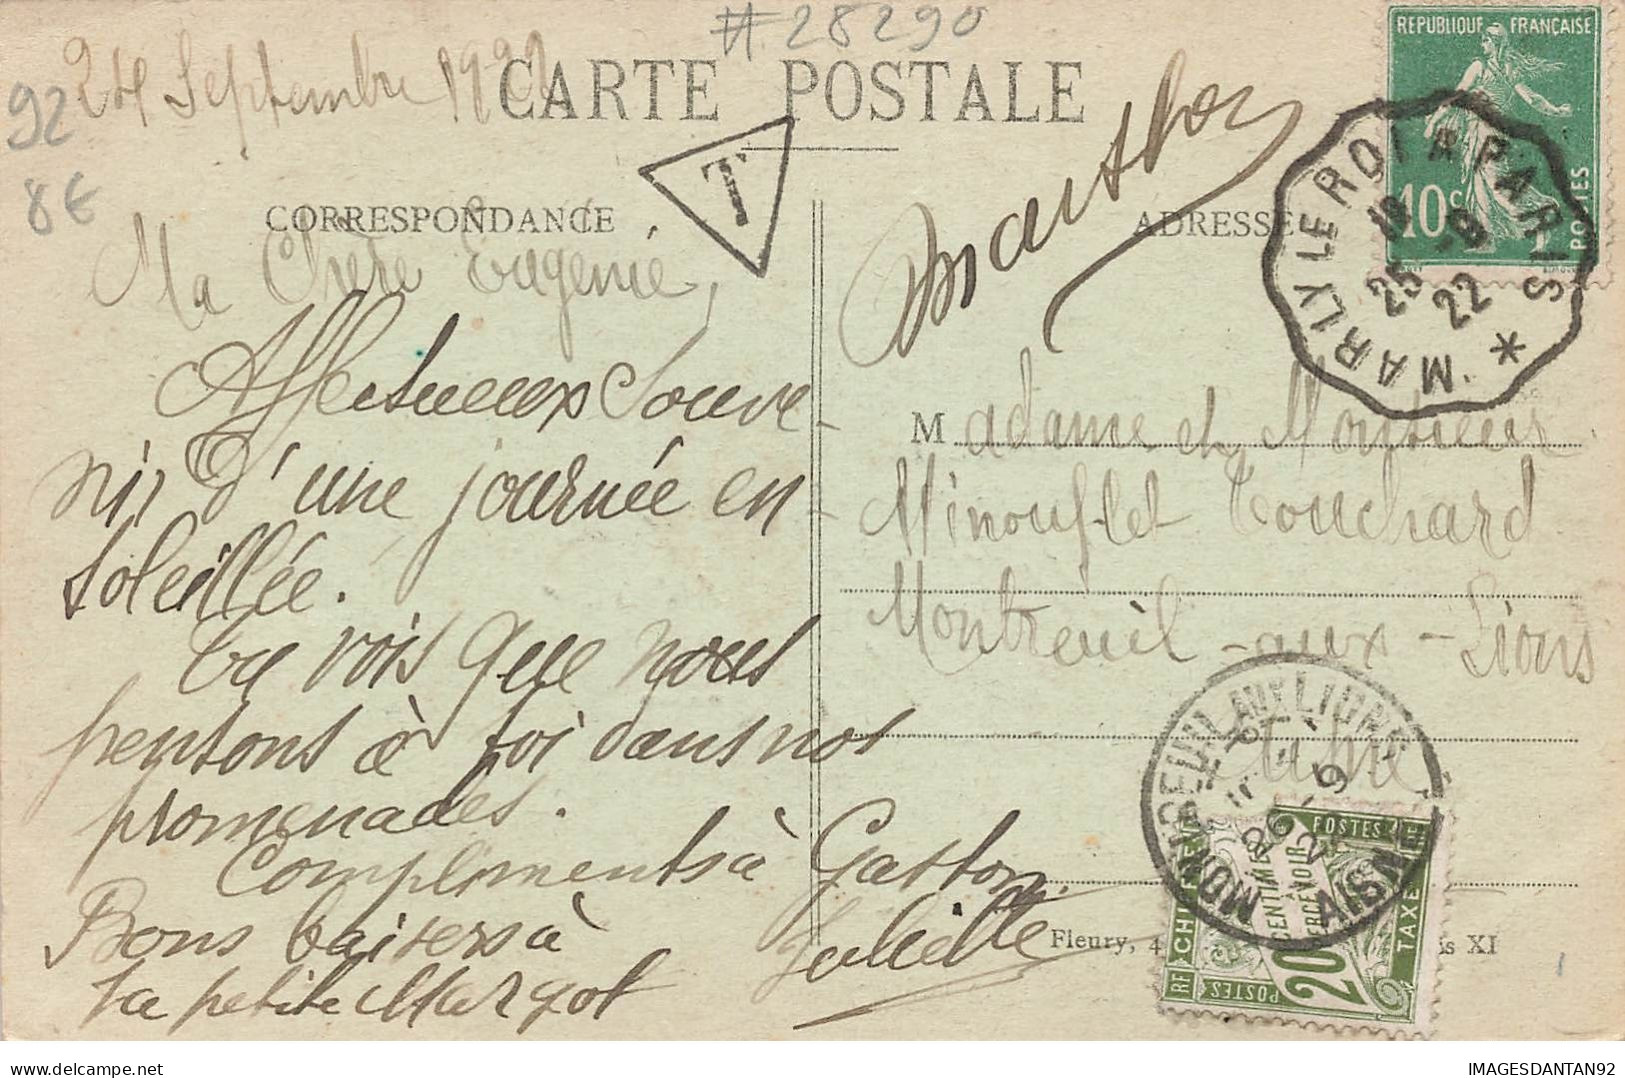 # 28290
24 Septembre 1922
92
8€
CARTE POSTALE
T
CORRESPONDANCE
ADRESSE
Ma Chère Eugénie,
Affectueux Souve-
nir d'une journée en-
soleillée.
tu vois que nous
pensons à toi dans nos
promenades.
Compliments à Gaston.
Bons baisers à
ta petite Margot
Juliette
REPUBLIQUE FRANÇAISE
10c
POSTES
MARLY LE ROI A PARIS
25 -9
22
Madame et Monsieur
Minouflet Touchard
Montreuil-aux-Lions
Aisne
MONTREUIL AUX LIONS
AISNE
26 -9
RF CHIFFRE TAXE
POSTES
20 CENTIMES
A PERCEVOIR
POSTES
Fleury, 4
is XI
IMAGESDANTAN92